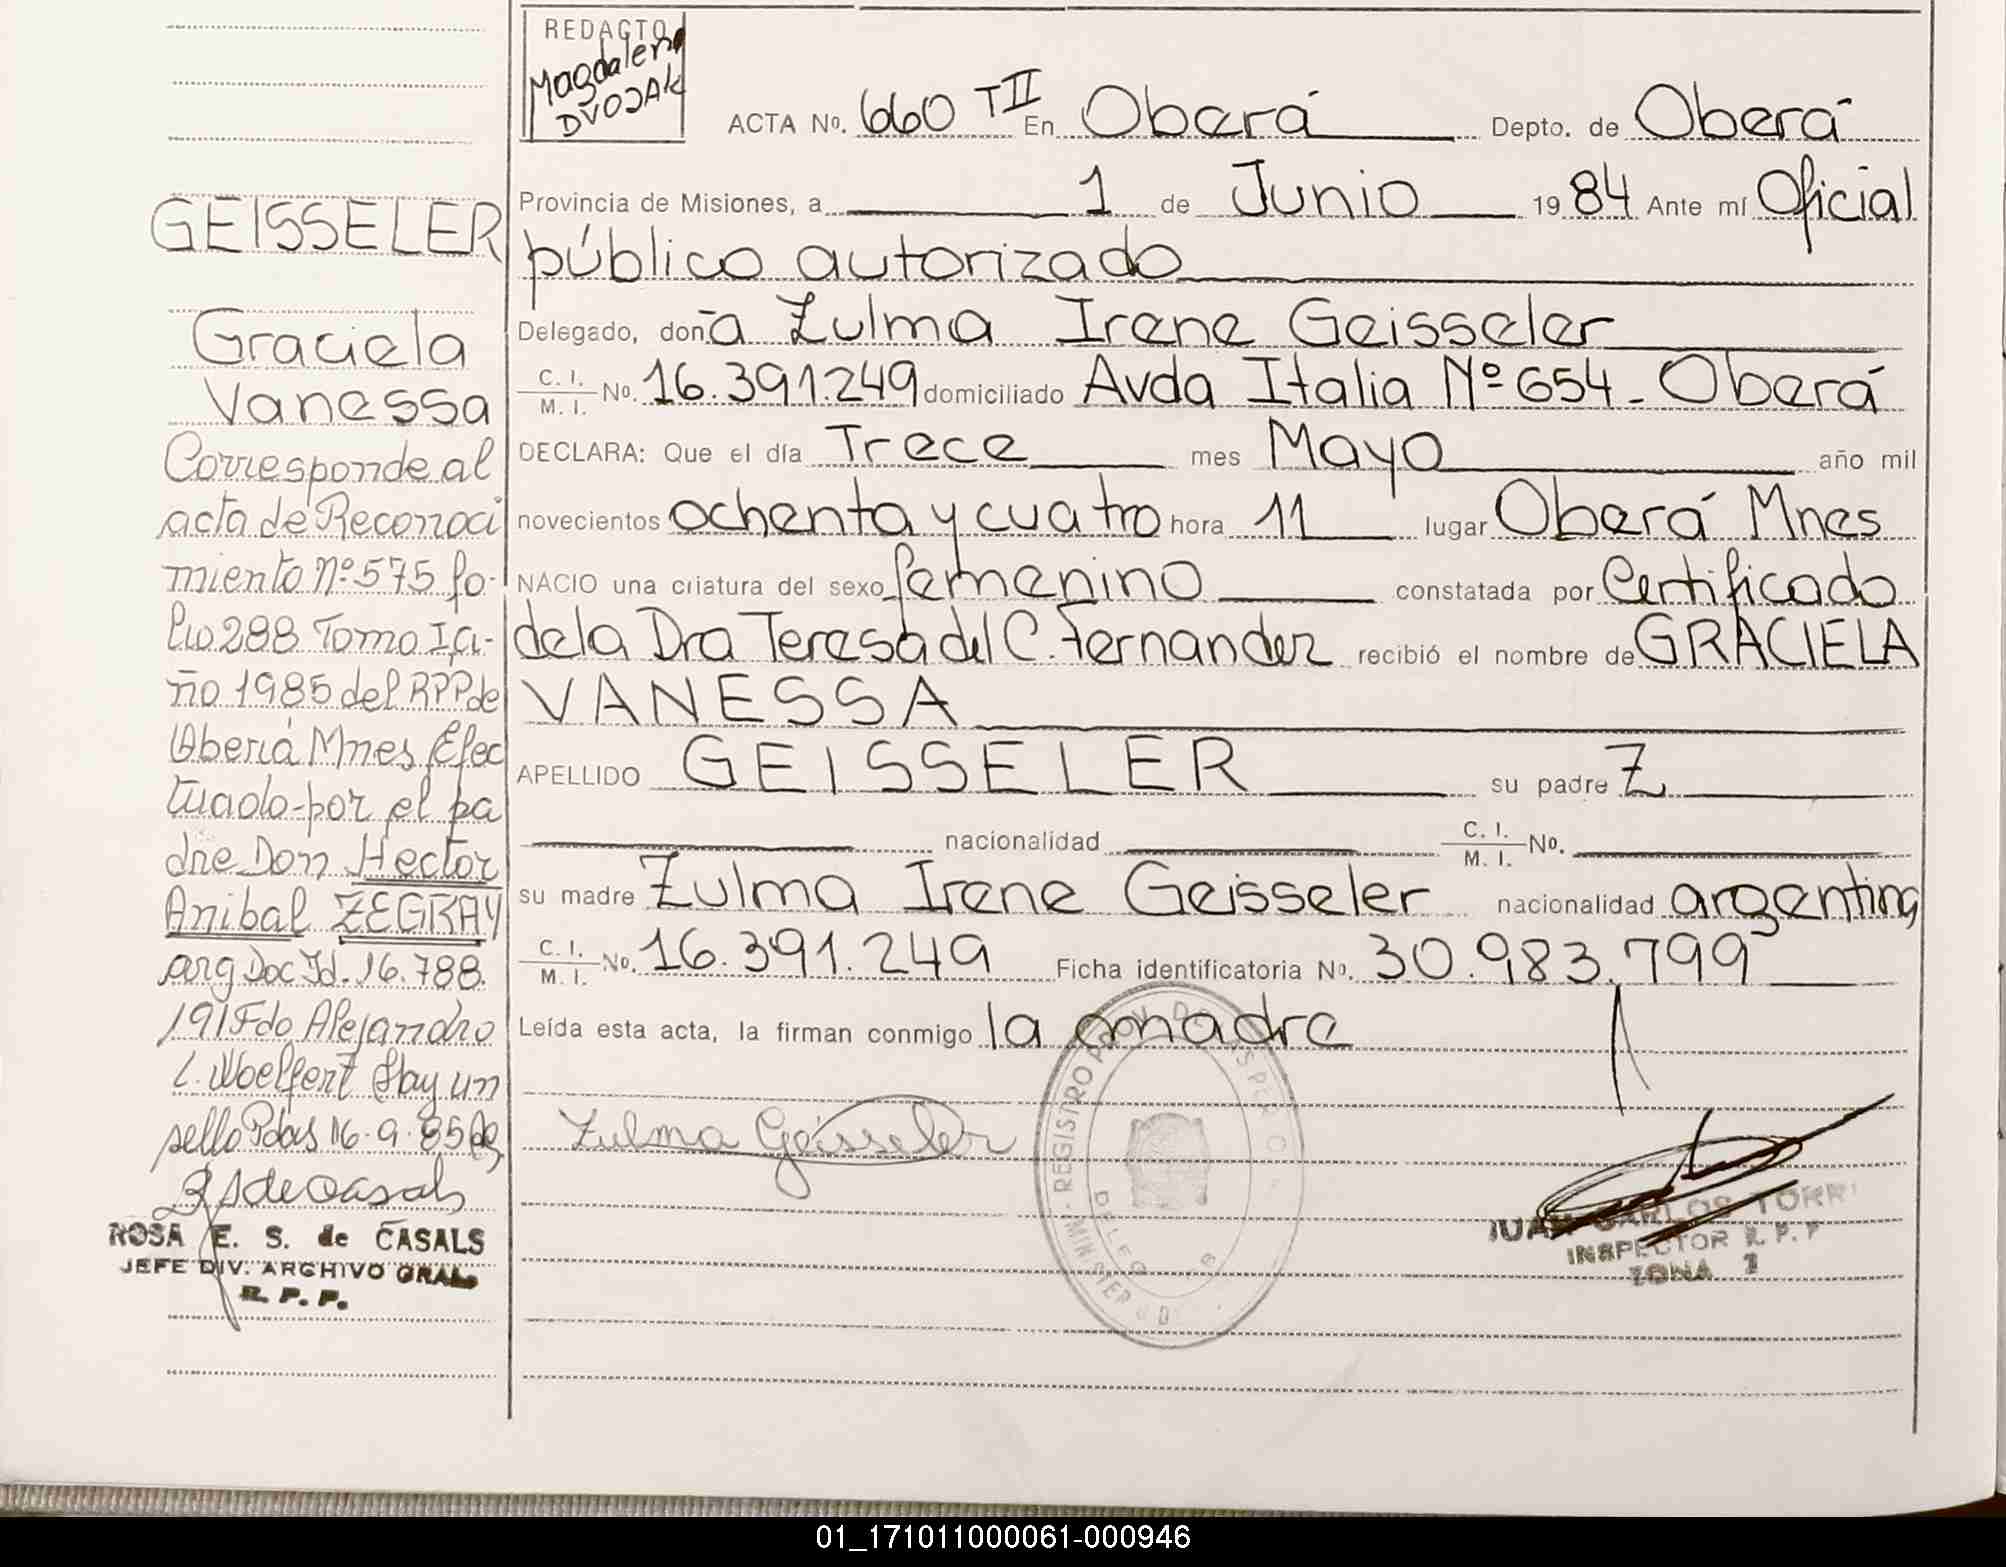 REDACTO
Magdalena
DVOJAK
ACTA No. 660 TII En Oberá Depto. de Oberá
Provincia de Misiones, a 1 de Junio 1984 Ante mí Oficial
público autorizado
Delegado, doña Zulma Irene Geisseler
C. I. M. I. No. 16.391.249 domiciliado Avda Italia Nº 654 - Oberá
DECLARA: Que el día Trece mes Mayo año mil
novecientos ochenta y cuatro hora 11 lugar Oberá Mnes
NACIO una criatura del sexo femenino constatada por Certificado
de la Dra Teresa del C. Fernandez recibió el nombre de GRACIELA
VANESSA
APELLIDO GEISSELER su padre Z
nacionalidad C. I. M. I. No.
su madre Zulma Irene Geisseler nacionalidad argentina
C. I. M. I. No. 16.391.249 Ficha identificatoria No. 30.983.799
Leída esta acta, la firman conmigo la madre
Zulma Geisseler
REGISTRO PROV. DE
JUAN CARLOS TORR
INSPECTOR R. P. P
ZONA 1
GEISSELER
Graciela
Vanessa
Corresponde al
acta de Reconoci
miento Nº 575 fo-
lio 288 Tomo I, a-
ño 1985 del RPP de
Oberá Mnes Efec
tuado por el pa
dre Don Hector
Anibal ZEGRAY
arg Doc Id. 16.788.
191 Fdo Alejandro
L. Woelfert Hay un
sello Pdas 16.9.85
ROSA E. S. de CASALS
JEFE DIV. ARCHIVO GRAL.
R. P. P.
01_171011000061-000946